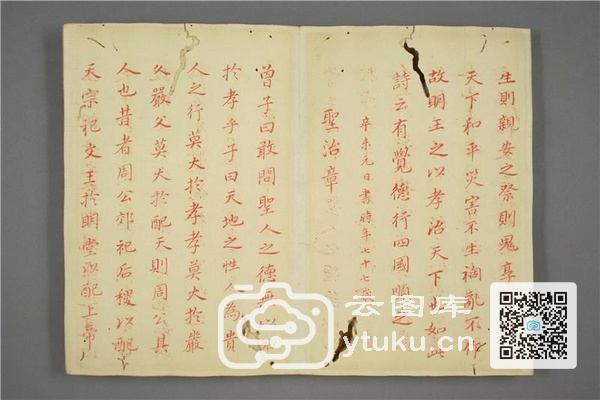 生則親安之祭則鬼享
天下和平災害不生禍亂不作
故明王之以孝治天下也如此
詩云有覺德行四國順之
辛未元日書時年七十七
聖治章
曾子曰敢問聖人之德無以
於孝乎子曰天地之性人為貴
人之行莫大於孝孝莫大於嚴
父嚴父莫大於配天則周公其
人也昔者周公郊祀后稷以配
天宗祀文王於明堂以配上帝
云图库
ytuku.cn